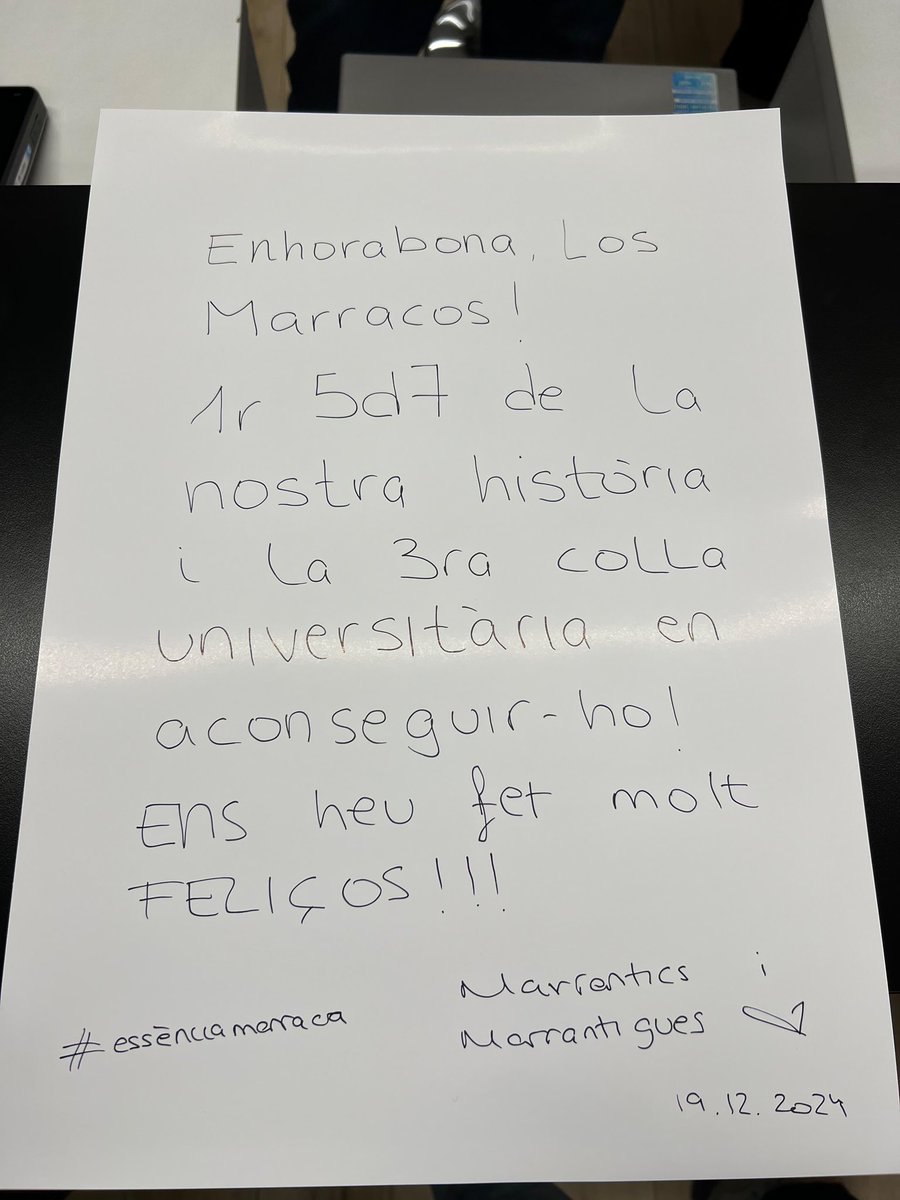 Enhorabona, Los
Marracos!
1r 5d7 de la
nostra història
i la 3ra colla
universitària en
aconseguir-ho!
Ens heu fet molt
FELIÇOS!!!
Marrantics i
Marrantigues
#essènciamarraca
19.12.2024